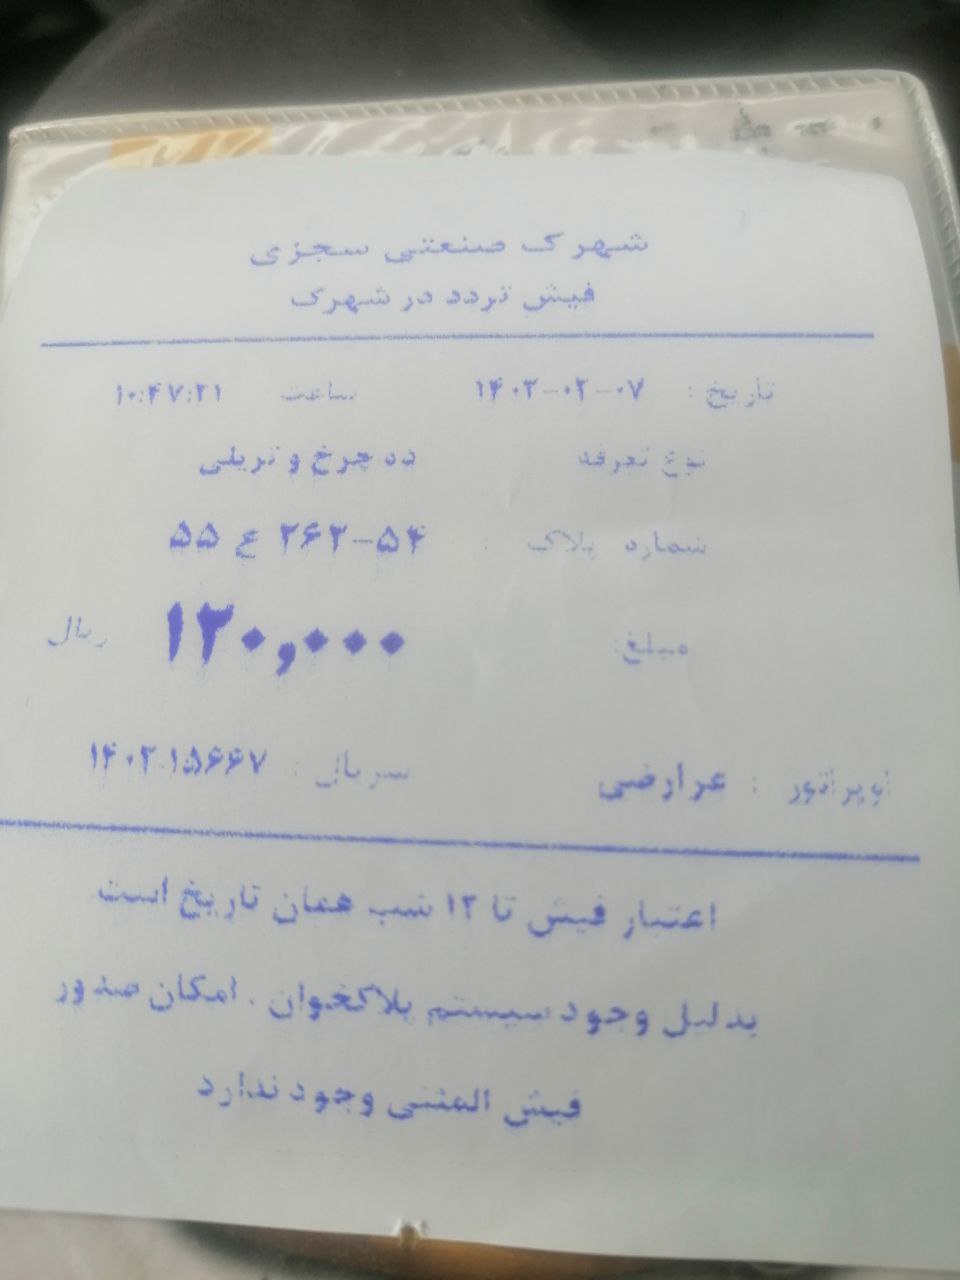 شهرک صنعتی سجزی
فیش تردد در شهرک
تاریخ : ۱۴۰۳-۰۲-۰۷ ساعت ۱۰:۴۷:۲۱
نوع تعرفه ده چرخ و تریلی
شماره پلاک : ۵۴-۲۶۲ ع ۵۵
مبلغ: ۱۲۰,۰۰۰ ریال
اوپراتور : عرارضی سریال : ۱۴۰۳.۱۵۶۶۷
اعتبار فیش تا ۱۲ شب همان تاریخ است
بدلیل وجود سیستم پلاکخوان . امکان صدور
فیش المثنی وجود ندارد